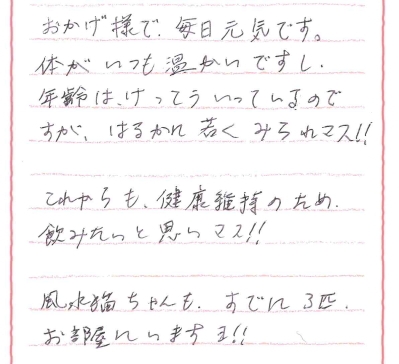 おかげ様で、毎日元気です。
体がいつも温かいですし、
年齢は、けっこういっているので
すが、はるかに若くみられマス!!
これからも、健康維持のため、
飲みたいと思いマス!!
風水猫ちゃんも、すでに3匹、
お部屋にいますヨ!!